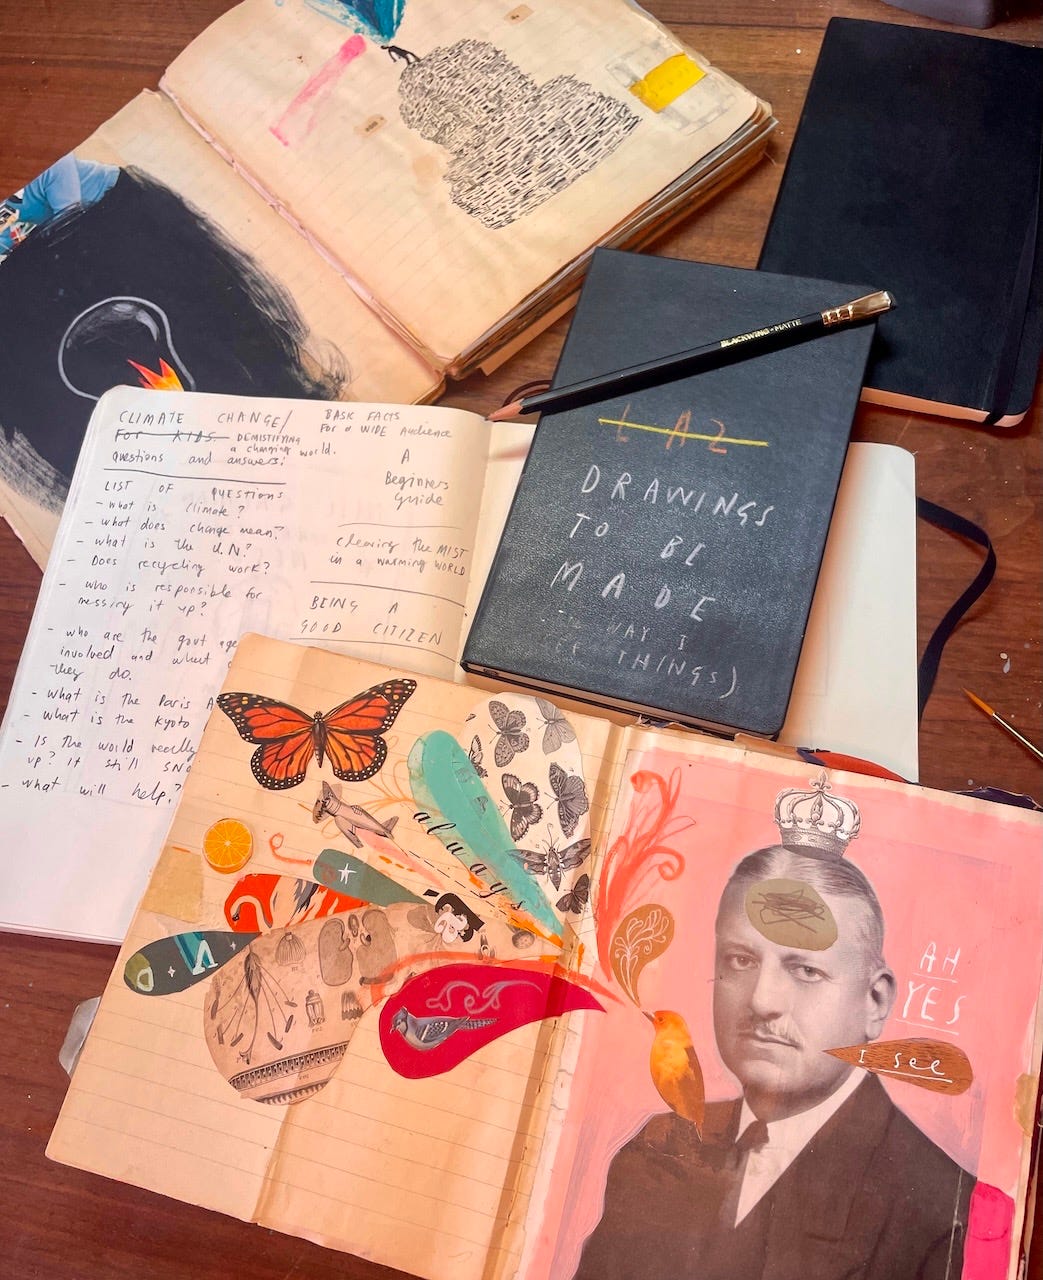 CLIMATE CHANGE/
FOR KIDS. DEMISTIFYING
a changing world.
Questions and answers:
LIST OF QUESTIONS
- what is climate?
- what does change mean?
- what is the U.N?
- Does recycling work?
- who is responsible for
messing it up?
- who are the govt age
involved and what
they do.
- What is the Paris A
- what is the Kyoto
- Is the world really
up? It still SNO
- what will help?
BASIC FACTS
For a WIDE Audience
A
Beginners
Guide
Clearing the MIST
in a warming WORLD
BEING A
GOOD CITIZEN
BLACKWING-MATTE
L A Z
DRAWINGS
TO BE
MADE
WAY I
THINGS)
always
AH
YES
I see